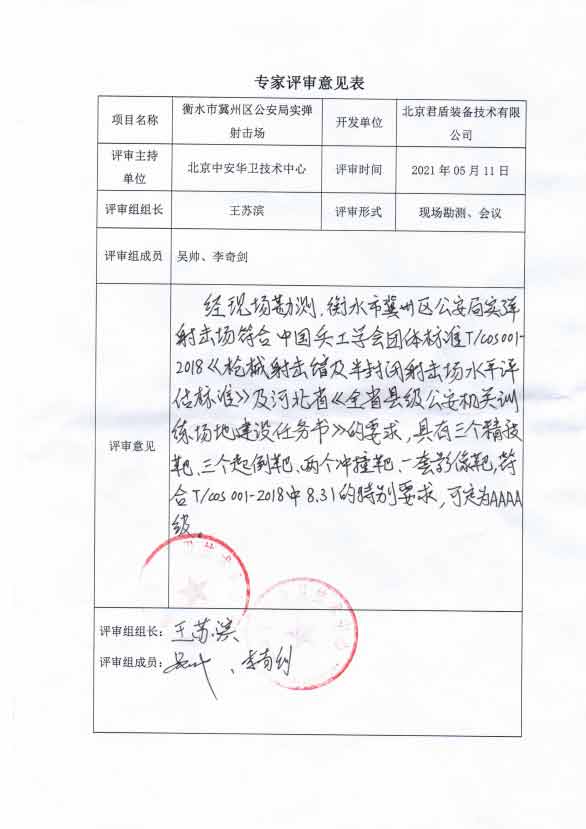 专家评审意见表
项目名称 衡水市冀州区公安局实弹射击场 开发单位 北京君盾装备技术有限公司
评审主持单位 北京中安华卫技术中心 评审时间 2021 年 05 月 11 日
评审组组长 王苏滨 评审形式 现场勘测、会议
评审组成员 吴帅、李奇剑
评审意见
经现场勘测,衡水市冀州区公安局实弹
射击场符合中国兵工学会团体标准T/COS001-
2018《枪械射击馆及半封闭射击场水平评
估标准》及河北省《全省县级公安机关训
练场地建设任务书》的要求,具有三个精技
靶、三个起倒靶、两个冲撞靶、一套影像靶,符
合T/COS 001-2018中8.31的特别要求,可定为AAAA
级。
评审组组长:王苏滨
评审组成员:吴帅、李奇剑